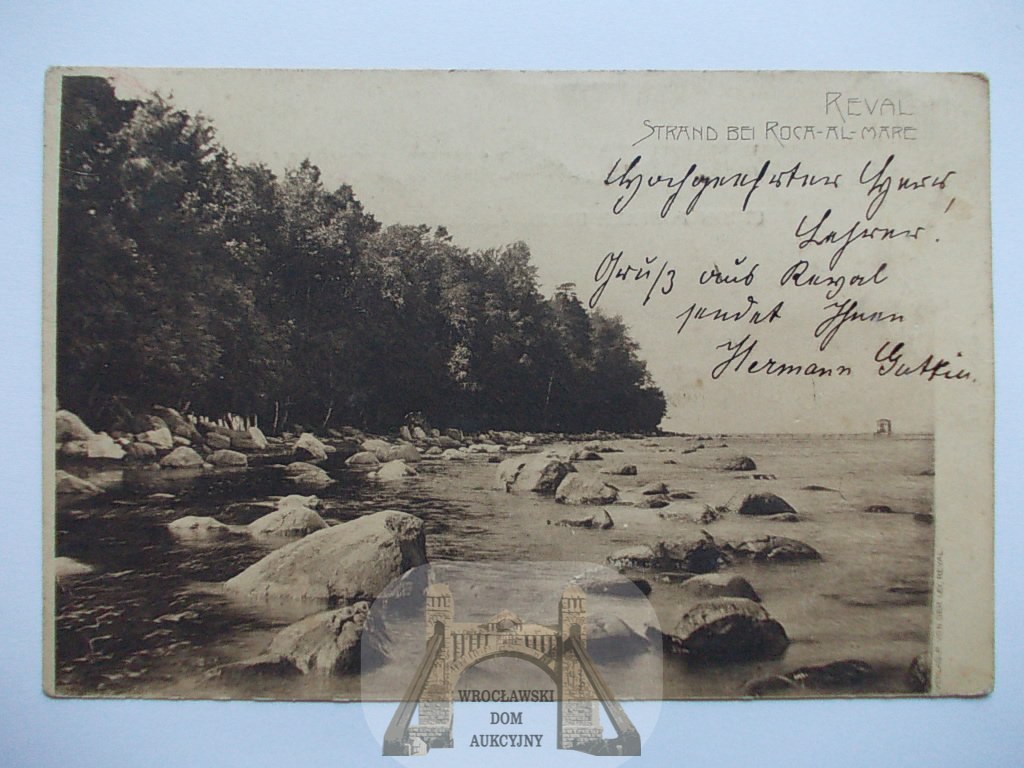 REVAL
STRAND BEI ROCA-AL-MARE
Hochgeehrter Herr,
Lehrer.
Gruß aus Reval
sendet Ihnen
Hermann
WROCŁAWSKI
DOM
AUKCYJNY